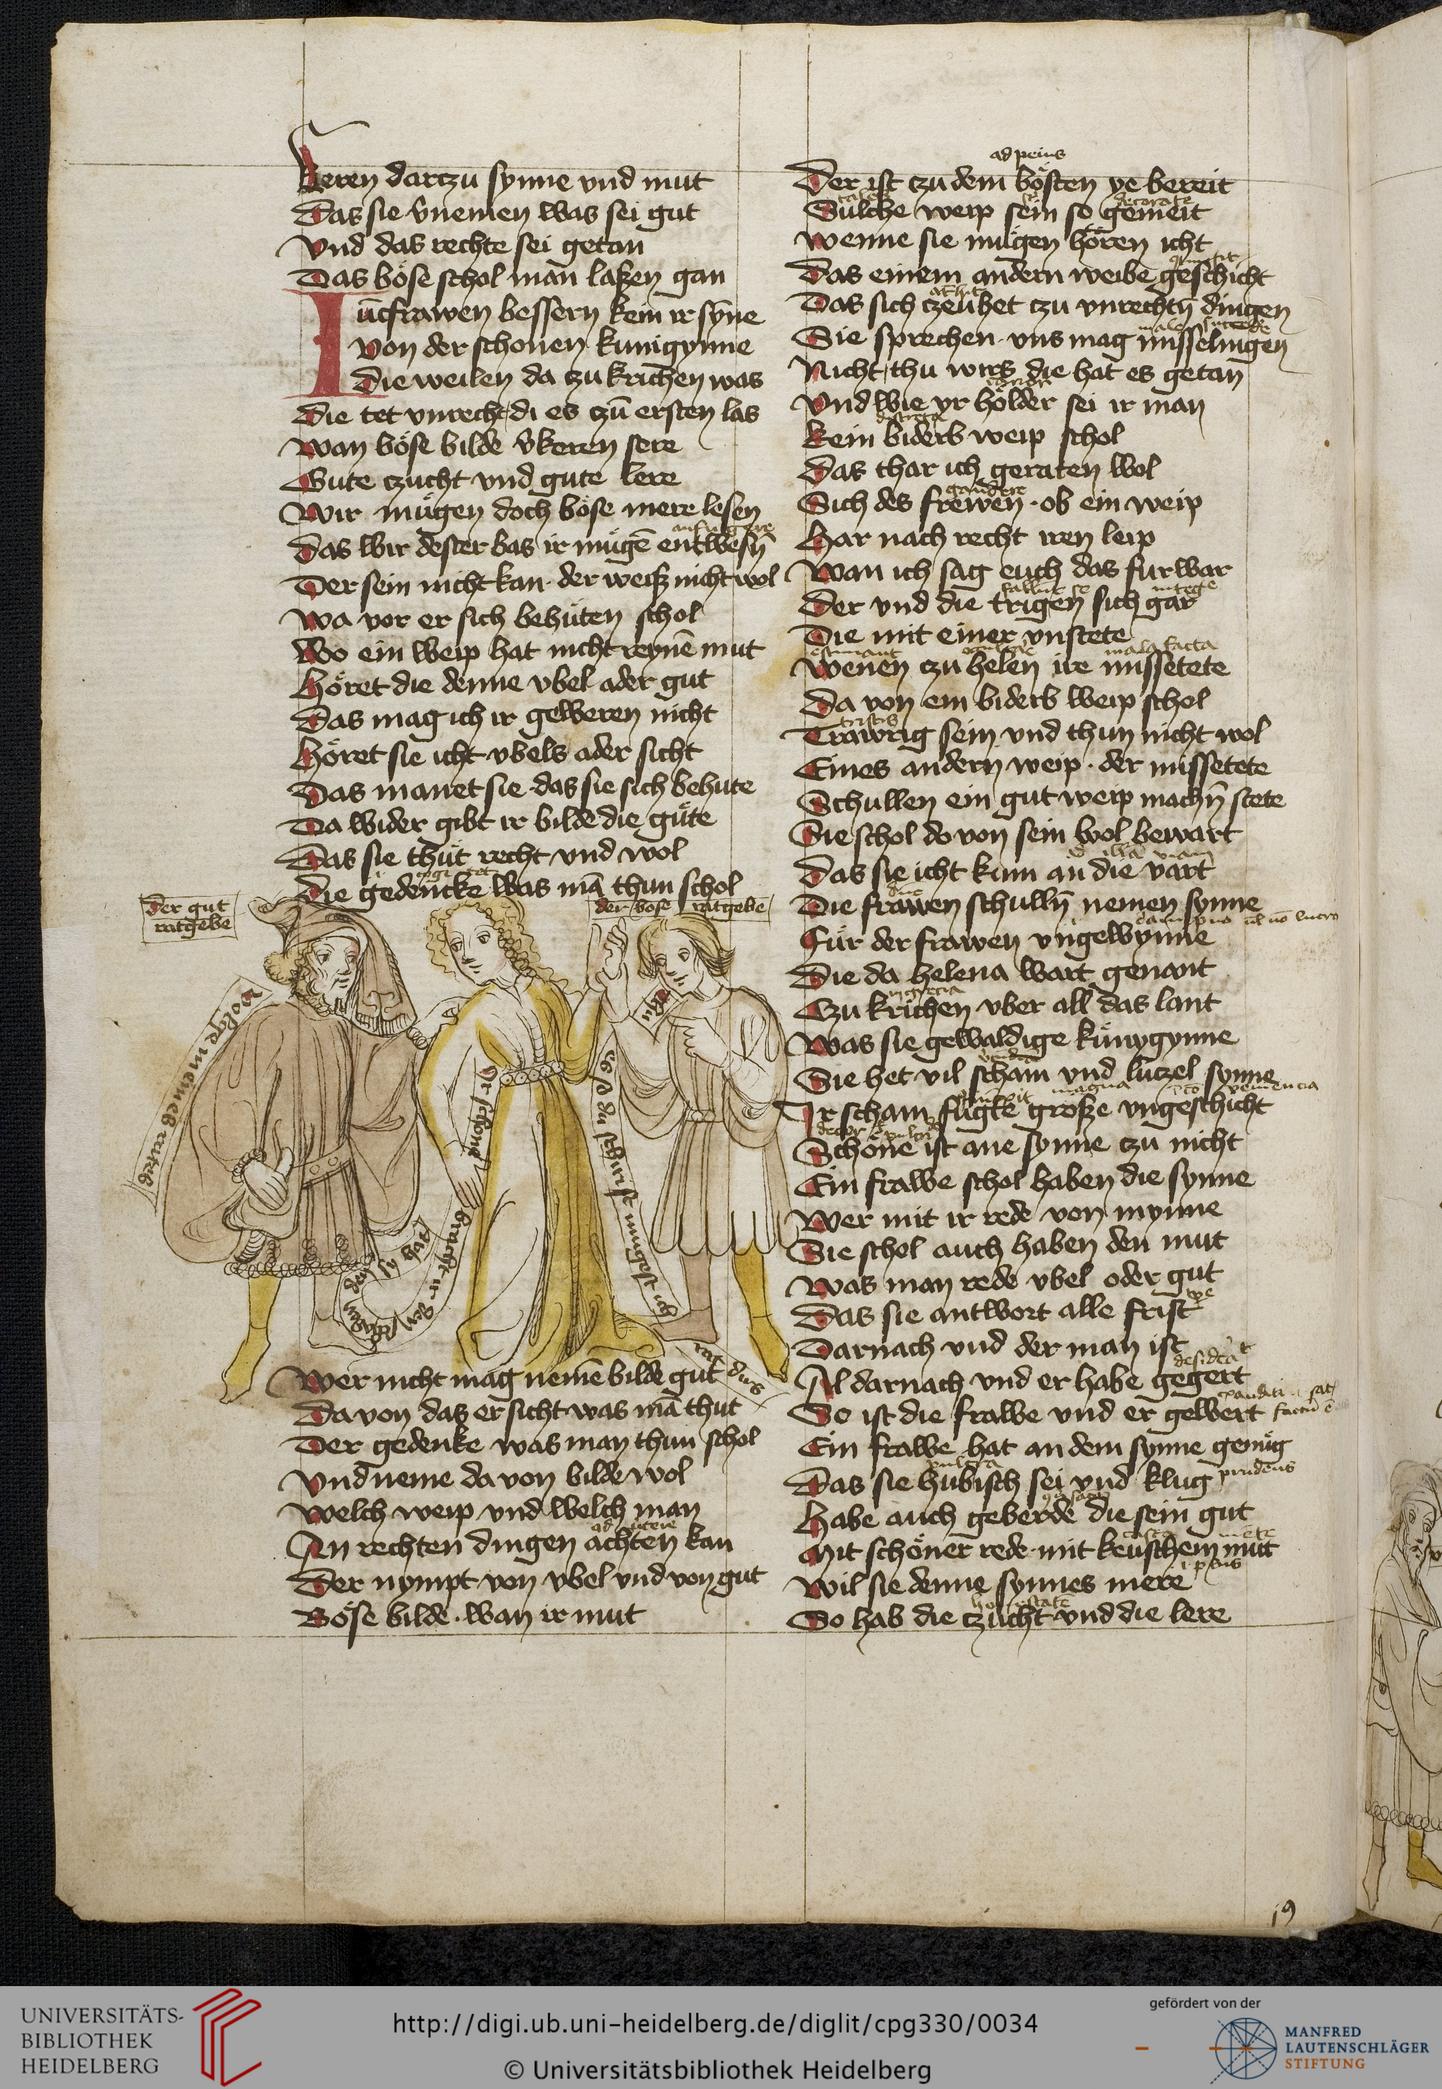 Keren darczu synne vnd mut
Das sie v̄nemen was sei gut
Vnd das rechte sei getan
Das böse schol man laßen gan
Iūcfrawen bessern kein ir syn̄e
Von der schonen kunigynne
Die weilen da zu krichen was
Die tet vnrecht di es czū ersten las
Wan böse bilde v̄keren sere
Gute czucht vnd gute lere
Wir mügen doch böse mere lesen
Das wir dester bas ir mügē entwesn̄
Der sein nicht kan · der weiß nicht wol
Wa vor er sich behüten schol
Wo ein weip hat nicht reynē mut
Höret die denne vbel ader gut
Das mag ich ir geweren nicht
Höret sie icht vbels ader sicht
Das manet sie das sie sich behute
Da wider gibt ir bilde die güte
Das sie thüt recht vnd wol
Die gedencke was mā thun schol
Der gut
ratgebe
der böse ratgebē
volge meines rates
thu
es du schirist
rat dus
Wer nicht mag nemē bilde gut
Da von das er sicht was mā thut
Der gedenke was man thun schol
Vnd neme da von bilde wol
Welch weip vnd welch man
An rechten dingen achten kan
Der nympt von vbel vnd von gut
Böse bilde · wan ir mut
ad peius
Der ist czu dem bösten ye bereit
Sülche weip sein so gemeit
Wenne sie mügen hören icht
Das einem andern weibe geschicht
Das sich czeuhet czu vnrechtn̄ dingen
Sie sprechen · vns mag misselingen
Nicht thu wirs die hat es getan
Vnd wie yr holder sei ir man
Kein biderb weip schol
Das thar ich geraten wol
gaudere
Sich des frewen · ob ein weip
Har nach recht iren leip
Wan ich sag euch das furwar
Der vnd die trigen sich gar
Die mit einer vnstete
mala facta
Wenen czu helen ire missetete
Da von ein biderb weip schol
tristis
Trawrig sein vnd thun nicht wol
Eines andern weip · der missetete
Schullen ein gut weip machn̄ stete
Sie schol do von sein wol bewart
Das sie icht kum an die vart
Die frawen schulln̄ nemen synne
Für der frawen vngewynne
Die da helena wart genant
in grecia
Czu krichen vber all das lant
Was sie gewaldige künygynne
Sie het vil scham vnd lüczel synne
magna
Ir scham fügte große vngeschicht
Schöne ist ane synne czu nicht
Ein frawe schol haben die synne
Wer mit ir rede von mynne
Sie schol auch haben den mut
Was man rede vbel oder gut
Das sie antwort alle frist
Darnach vnd der man ist
Al darnach vnd er habe gegert
So ist die frawe vnd er gewert
Ein frawe hat an dem synne genüg
pulcra
Das sie hübisch sei vnd klug prudens
Habe auch geberde die sein gut
Mit schöner rede · mit keuschem mut
Wil sie denne synnes mere
So hab die czücht vnd die lere
19
UNIVERSITÄTS-
BIBLIOTHEK
HEIDELBERG
http://digi.ub.uni-heidelberg.de/diglit/cpg330/0034
© Universitätsbibliothek Heidelberg
gefördert von der
MANFRED
LAUTENSCHLÄGER
STIFTUNG